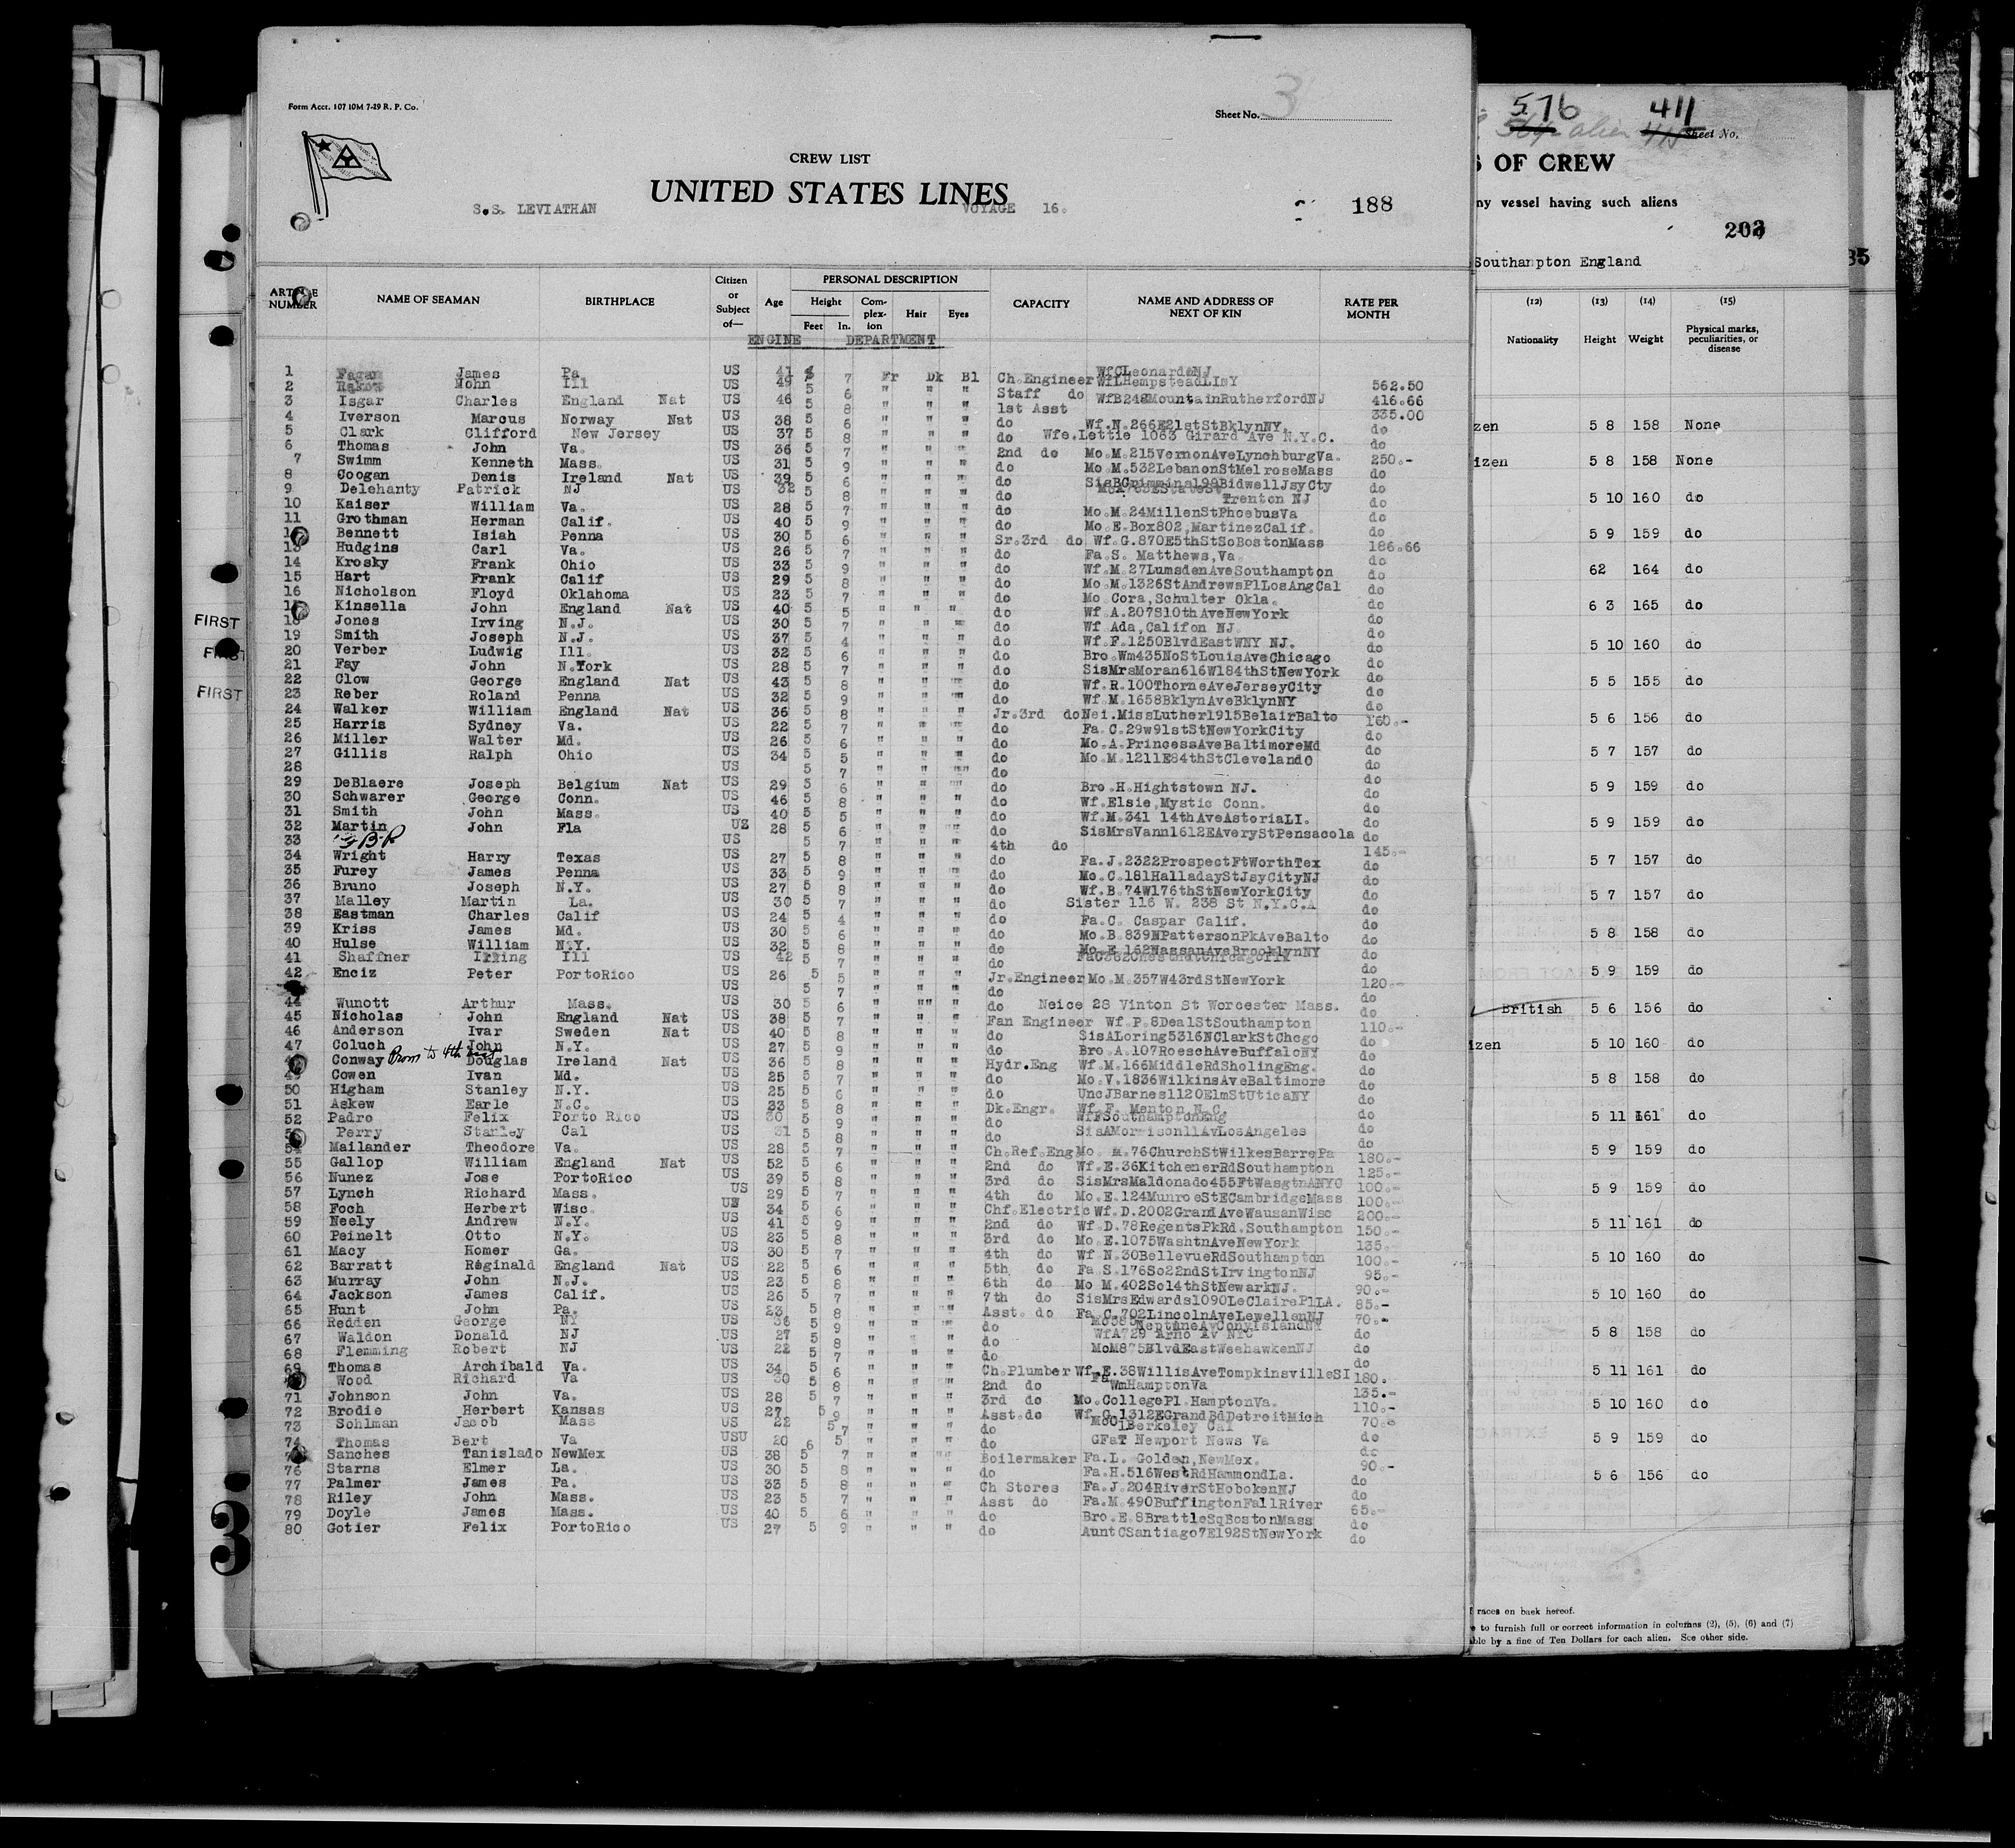 Form Acct. 107 10M 7-29 R. P. Co.
Sheet No. 3
CREW LIST
UNITED STATES LINES
S.S. LEVIATHAN VOYAGE 16.
188
ARTICLE NUMBER NAME OF SEAMAN BIRTHPLACE Citizen or Subject of— Age PERSONAL DESCRIPTION Height Feet In. Complexion Hair Eyes CAPACITY NAME AND ADDRESS OF NEXT OF KIN RATE PER MONTH
ENGINE DEPARTMENT
1 Fagan James Pa US 41 5 7 Fr Dk Bl Ch.Engineer 562.50
2 John Ill US 49 5 6 " " " Staff do WfLHempsteadLINY 416.66
3 Isgar Charles England Nat US 46 5 8 " " " 1st Asst WfB248MountainRutherfordNJ 335.00
4 Iverson Marcus Norway Nat US 38 5 6 " " " do Wf.N.266E21stStBklynNY. do
5 Clark Clifford New Jersey US 37 5 8 " " " do Wfe.Lettie 1063 Girard Ave N.Y.C. do
6 Thomas John Va. US 36 5 7 " " " 2nd do Mo.M.215VernonAveLynchburgVa. 250.-
7 Swimm Kenneth Mass. US 31 5 9 " " " do Mo.M.532LebanonStMelroseMass do
8 Coogan Denis Ireland Nat US 39 5 6 " " " do SisBCrimmins199BidwellJsyCty do
9 Delehanty Patrick NJ US 32 5 8 " " " do Trenton NJ do
10 Kaiser William Va. US 28 5 7 " " " do Mo.M.24MillenStPhoebusVa do
11 Grothman Herman Calif. US 40 5 9 " " " do Mo.E.Box802,MartinezCalif. do
Bennett Isiah Penna US 30 5 6 " " " Sr.3rd do Wf.G.870E5thStSoBostonMass 186.66
13 Hudgins Carl Va. US 26 5 7 " " " do Fa.S. Matthews,Va. do
14 Krosky Frank Ohio US 33 5 9 " " " do Wf.M.27LumsdenAveSouthampton do
15 Hart Frank Calif US 29 5 8 " " " do Mo.M.1326StAndrewsPlLosAngCal do
16 Nicholson Floyd Oklahoma US 23 5 7 " " " do Mo.Cora,Schulter Okla. do
Kinsella John England Nat US 40 5 5 " " " do Wf.A.207S10thAveNewYork do
18 Jones Irving N.J. US 30 5 7 " " " do Wf Ada,Califon NJ. do
19 Smith Joseph N.J. US 37 5 4 " " " do Wf.F.1250BlvdEastWNY NJ. do
20 Verber Ludwig Ill. US 32 5 6 " " " do Bro.Wm435NoStLouisAveChicago do
21 Fay John N.York US 28 5 7 " " " do SisMrsMoran616W184thStNewYork do
22 Clow George England Nat US 43 5 8 " " " do Wf.R.100ThorneAveJerseyCity do
23 Reber Roland Penna US 32 5 9 " " " do Wf.M.1658BklynAveBklynNY do
24 Walker William England Nat US 36 5 8 " " " Jr.3rd do Nei.MissLuther1915BelairBalto 160.-
25 Harris Sydney Va. US 22 5 7 " " " do Fa.C.29w91stStNewYorkCity do
26 Miller Walter Md. US 26 5 6 " " " do Mo.A.PrincessAveBaltimoreMd do
27 Gillis Ralph Ohio US 34 5 5 " " " do Mo.M.1211E84thStClevelandO do
28 US 5 7 " " " do do
29 DeBlaere Joseph Belgium Nat US 29 5 6 " " " do Bro.H.Hightstown NJ. do
30 Schwarer George Conn. US 46 5 8 " " " do Wf.Elsie,Mystic Conn. do
31 Smith John Mass. US 40 5 5 " " " do Wf.M.341 14thAveAstoriaLI. do
32 Martin John Fla US 28 5 6 " " " do SisMrsVann1612EAveryStPensacola do
33 US 5 7 " " " 4th do 145.-
34 Wright Harry Texas US 27 5 8 " " " do Fa.J.2322ProspectFtWorthTex do
35 Furey James Penna US 33 5 9 " " " do Mo.C.181HalladayStJsyCityNJ do
36 Bruno Joseph N.Y. US 27 5 8 " " " do Wf.B.74W176thStNewYorkCity do
37 Malley Martin La. US 30 5 7 " " " do Sister 116 W. 238 St N.Y.C. do
38 Eastman Charles Calif US 24 5 4 " " " do Fa.C. Caspar Calif. do
39 Kriss James Md. US 30 5 6 " " " do Mo.B.839NPattersonPkAveBalto do
40 Hulse William N.Y. US 32 5 8 " " " do Mo.E.162NassauAveBrooklynNY do
41 Shaffner Ill US 42 5 7 " " " do do
42 Enciz Peter PortoRico US 26 5 5 " " " Jr.Engineer Mo.M.357W43rdStNewYork 120.-
US 5 7 " " " do do
44 Wunott Arthur Mass. US 30 5 6 " " " do Neice 28 Vinton St Worcester Mass. do
45 Nicholas John England Nat US 38 5 7 " " " Fan Engineer Wf.P.8DealStSouthampton 110.-
46 Anderson Ivar Sweden Nat US 40 5 8 " " " do SisALoring5316NClarkStChcgo do
47 Coluch John N.Y. US 27 5 9 " " " do Bro.A.107RoeschAveBuffaloNY do
Conway Prom to 4th Douglas Ireland Nat US 36 5 8 " " " Hydr.Eng Wf.M.166MiddleRdSholingEng. do
Cowen Ivan Md. US 25 5 7 " " " do Mo.V.1836WilkinsAveBaltimore do
50 Higham Stanley N.Y. US 25 5 6 " " " do UncJBarnes1120ElmStUticaNY do
51 Askew Earle N.C. US 23 5 8 " " " Dk.Engr. Wf.F. Menton N.C. do
52 Padro Felix Porto Rico US 30 5 9 " " " do WfFSouthamptonEng do
Perry Stanley Cal US 31 5 8 " " " do SisAMorrison11AvLosAngeles do
54 Mailander Theodore Va. US 28 5 7 " " " Ch.Ref.Eng Mo. M.76ChurchStWilkesBarrePa 180.-
55 Gallop William England Nat US 52 5 6 " " " 2nd do Wf.E.36KitchenerRdSouthampton 125.-
56 Nunez Jose PortoRico US 39 5 8 " " " 3rd do SisMrsMaldonado455FtWasgtnANYC 100.-
57 Lynch Richard Mass. US 29 5 7 " " " 4th do Mo.E.124MunroeStECambridgeMass 100.-
58 Foch Herbert Wisc. US 34 5 6 " " " Chf.Electric Wf.D.2002GrandAveWausanWisc 200.-
59 Neely Andrew N.Y. US 41 5 9 " " " 2nd do Wf D.78RegentsPkRd.Southampton 150.-
60 Peinelt Otto N.Y. US 23 5 8 " " " 3rd do Mo E.1075WashtnAveNewYork 135.
61 Macy Homer Ga. US 30 5 7 " " " 4th do Wf N.30BellevueRdSouthampton 100.-
62 Barratt Reginald England Nat US 22 5 6 " " " 5th do Fa S.176So22ndStIrvingtonNJ 95.-
63 Murray John N.J. US 23 5 8 " " " 6th do Mo M.402So14thStNewarkNJ. 90.-
64 Jackson James Calif. US 26 5 7 " " " 7th do SisMrsEdwards1090LeClairePlLA. 85.-
65 Hunt John Pa. US 23 5 8 " " " Asst. do Fa.C.702LincolnAveLewellenNJ 70.-
66 Redden George NY US 36 5 9 " " " do NeptuneAvConyIslandNY do
67 Waldon Donald NJ US 27 5 8 " " " do WfA729 Arno Av NYC
68 Flemming Robert NJ US 22 5 7 " " " do MoM875BlvdEastWeehawkenNJ do
69 Thomas Archibald Va. US 34 5 6 " " " Ch.Plumber Wf.E.38WillisAveTompkinsvilleSI 180.
Wood Richard Va US 30 5 8 " " " 2nd do Fa WmHamptonVa 135.-
71 Johnson John Va. US 28 5 7 " " " 3rd do Mo.CollegePl.HamptonVa. 110.-
72 Brodie Herbert Kansas US 27 5 9 " " " Asst.do Wf.G.1312EGrandBdDetroitMich 70.-
73 Sohlman Jacob Mass US 22 5 7 " " " do Berkeley Cal do
74 Thomas Bert Va USU 20 6 5 " " " do GFaT Newport News Va do
Sanches Tanislado NewMex US 38 5 7 " " " Boilermaker Fa.L. Golden,NewMex. 90.-
76 Starns Elmer La. US 30 5 8 " " " do Fa.H.516WestRdHammondLa. do
77 Palmer James Pa. US 33 5 8 " " " Ch Stores Fa.J.204RiverStHobokenNJ do
78 Riley John Mass. US 23 5 7 " " " Asst do Fa.M.490BuffingtonFallRiver 65.-
79 Doyle James Mass. US 40 5 6 " " " do Bro.E.8BrattleSqBostonMass do
80 Gotier Felix PortoRico US 27 5 9 " " " do AuntCSantiago7E192StNewYork do
FIRST
FIRST
FIRST
3
576 411
alien Sheet No.
S OF CREW
ny vessel having such aliens
203
Southampton England
35
(12) (13) (14) (15)
Nationality Height Weight Physical marks, peculiarities, or disease
zen 5 8 158 None
izen 5 8 158 None
5 10 160 do
5 9 159 do
62 164 do
6 3 165 do
5 10 160 do
5 5 155 do
5 6 156 do
5 7 157 do
5 9 159 do
5 9 159 do
5 7 157 do
5 7 157 do
5 8 158 do
5 9 159 do
British 5 6 156 do
izen 5 10 160 do
5 8 158 do
5 11 161 do
5 9 159 do
5 9 159 do
5 11 161 do
5 10 160 do
5 10 160 do
5 8 158 do
5 11 161 do
5 10 160 do
5 9 159 do
5 6 156 do
f races on back hereof.
e to furnish full or correct information in columns (2), (5), (6) and (7)
ble by a fine of Ten Dollars for each alien. See other side.